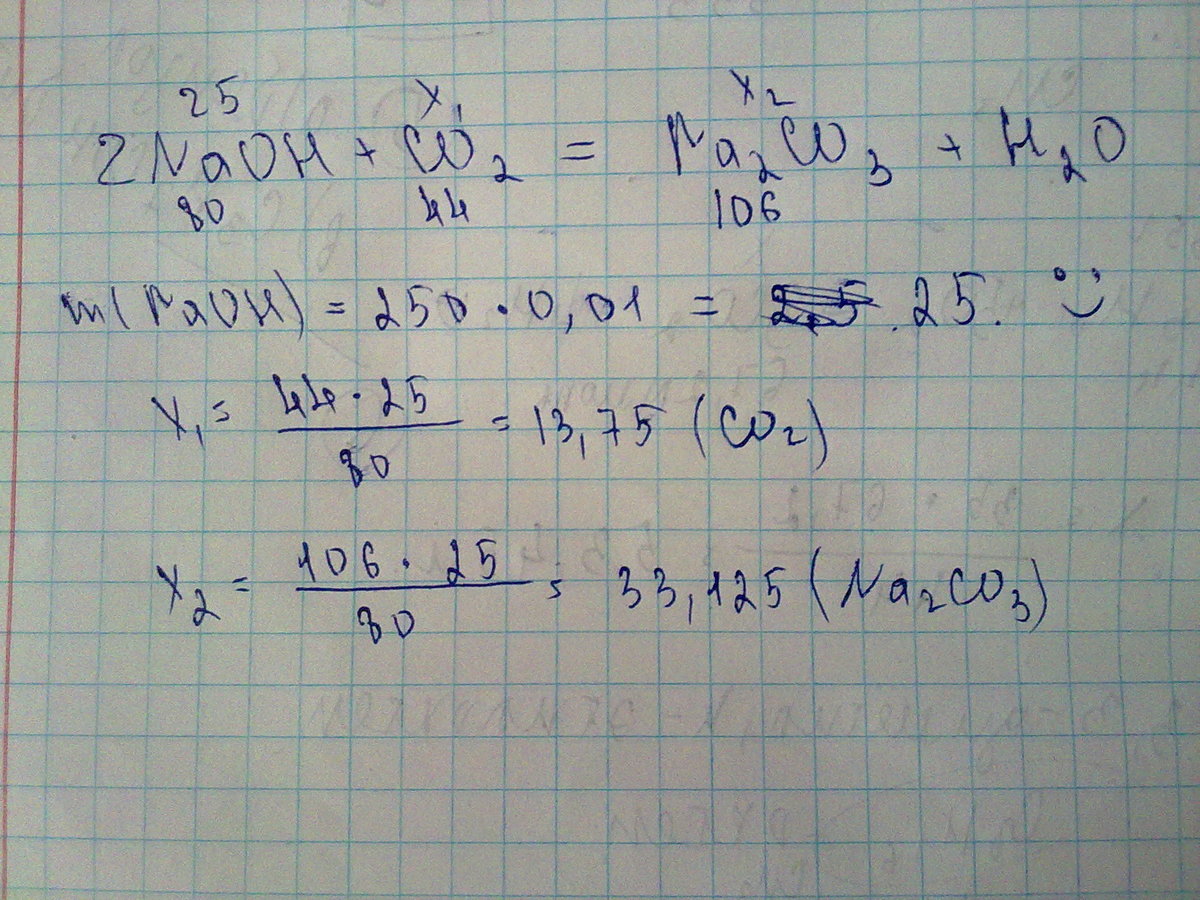 25 x₁ x₂
2NaOH + CO₂ = Na₂CO₃ + H₂O
80 44 106
m(NaOH) = 250 · 0,01 = 25. :)
x₁ = 44 · 25 / 80 = 13,75 (CO₂)
x₂ = 106 · 25 / 80 = 33,125 (Na₂CO₃)